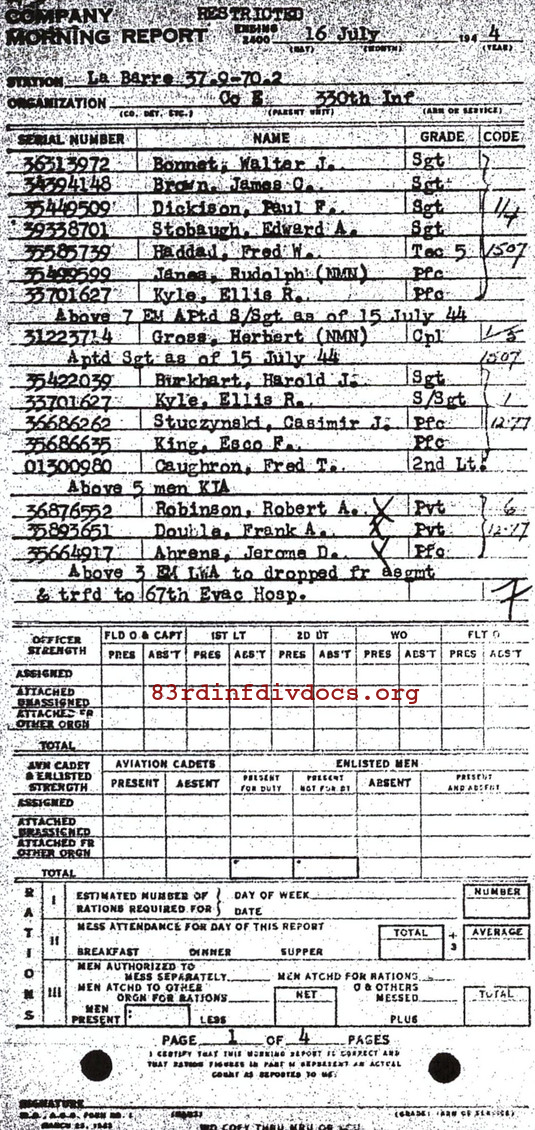 COMPANY RESTRICTED
MORNING REPORT ENDING 2400 16 July 194 4
(DAY) (MONTH) (YEAR)
STATION La Barre 37.9-70.2
ORGANIZATION Co E 330th Inf
(CO. DET. ETC.) (PARENT UNIT) (ARM OR SERVICE)
SERIAL NUMBER NAME GRADE CODE
36313972 Bonnet, Walter J. Sgt
34394148 Brown, James C. Sgt
35449509 Dickison, Paul F. Sgt
39338701 Stobaugh, Edward A. Sgt
35585739 Haddad, Fred W. Tec 5 1507
35499599 Janes, Rudolph (NMN) Pfc
33701627 Kyle, Ellis R. Pfc
Above 7 EM APtd S/Sgt as of 15 July 44
31223714 Gross, Herbert (NMN) Cpl
Aptd Sgt as of 15 July 44 1507
35422039 Burkhart, Harold J. Sgt
33701627 Kyle, Ellis R. S/Sgt 1
36686262 Stuczynski, Casimir J. Pfc 12-17
35686635 King, Esco F. Pfc
01300980 Caughron, Fred T. 2nd Lt.
Above 5 men KIA
36876552 Robinson, Robert A. X Pvt 6
35893651 Double, Frank A. X Pvt 12-17
35664917 Ahrens, Jerome D. X Pfc
Above 3 EM LWA to dropped fr asgmt
& trfd to 67th Evac Hosp. 7
OFFICER STRENGTH FLD O & CAPT 1ST LT 2D LT WO FLT O
PRES ABS'T PRES ABS'T PRES ABS'T PRES ABS'T PRES ABS'T
ASSIGNED
ATTACHED UNASSIGNED
83rdinfdivdocs.org
ATTACHED FR OTHER ORGN
TOTAL
AVN CADET & ENLISTED STRENGTH AVIATION CADETS ENLISTED MEN
PRESENT ABSENT PRESENT FOR DUTY PRESENT NOT FOR DY ABSENT PRESENT AND ABSENT
ASSIGNED
ATTACHED UNASSIGNED
ATTACHED FR OTHER ORGN
TOTAL
RATIONS
I ESTIMATED NUMBER OF RATIONS REQUIRED FOR DAY OF WEEK NUMBER
DATE
II MESS ATTENDANCE FOR DAY OF THIS REPORT TOTAL ÷ 3 AVERAGE
BREAKFAST DINNER SUPPER
III MEN AUTHORIZED TO MESS SEPARATELY MEN ATCHD FOR RATIONS
MEN ATCHD TO OTHER ORGN FOR RATIONS NET O & OTHERS MESSED TOTAL
MEN PRESENT LESS PLUS
PAGE 1 OF 4 PAGES
I CERTIFY THAT THIS MORNING REPORT IS CORRECT AND
THAT RATION FIGURES IN PART III REPRESENT AN ACTUAL
COUNT AS REPORTED TO ME.
SIGNATURE
W.D., A.G.O. FORM NO. 1 (NAME) (GRADE) (ARM OR SERVICE)
MARCH 23, 1943